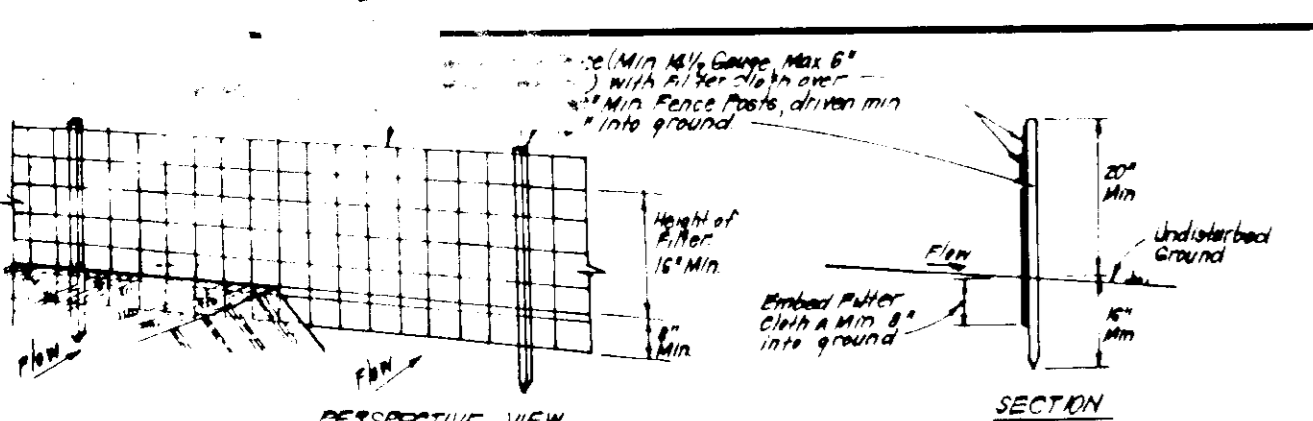 (Min 14½ Gauge, Max 6"
) with Filter Cloth over
" Min. Fence Posts, driven min
" into ground.
Height of
Filter
16" Min.
8"
Min.
Flow
Flow
PERSPECTIVE VIEW
20"
Min
Flow
Undisturbed
Ground
Embed Filter
Cloth A Min 8"
into ground
16"
Min
SECTION